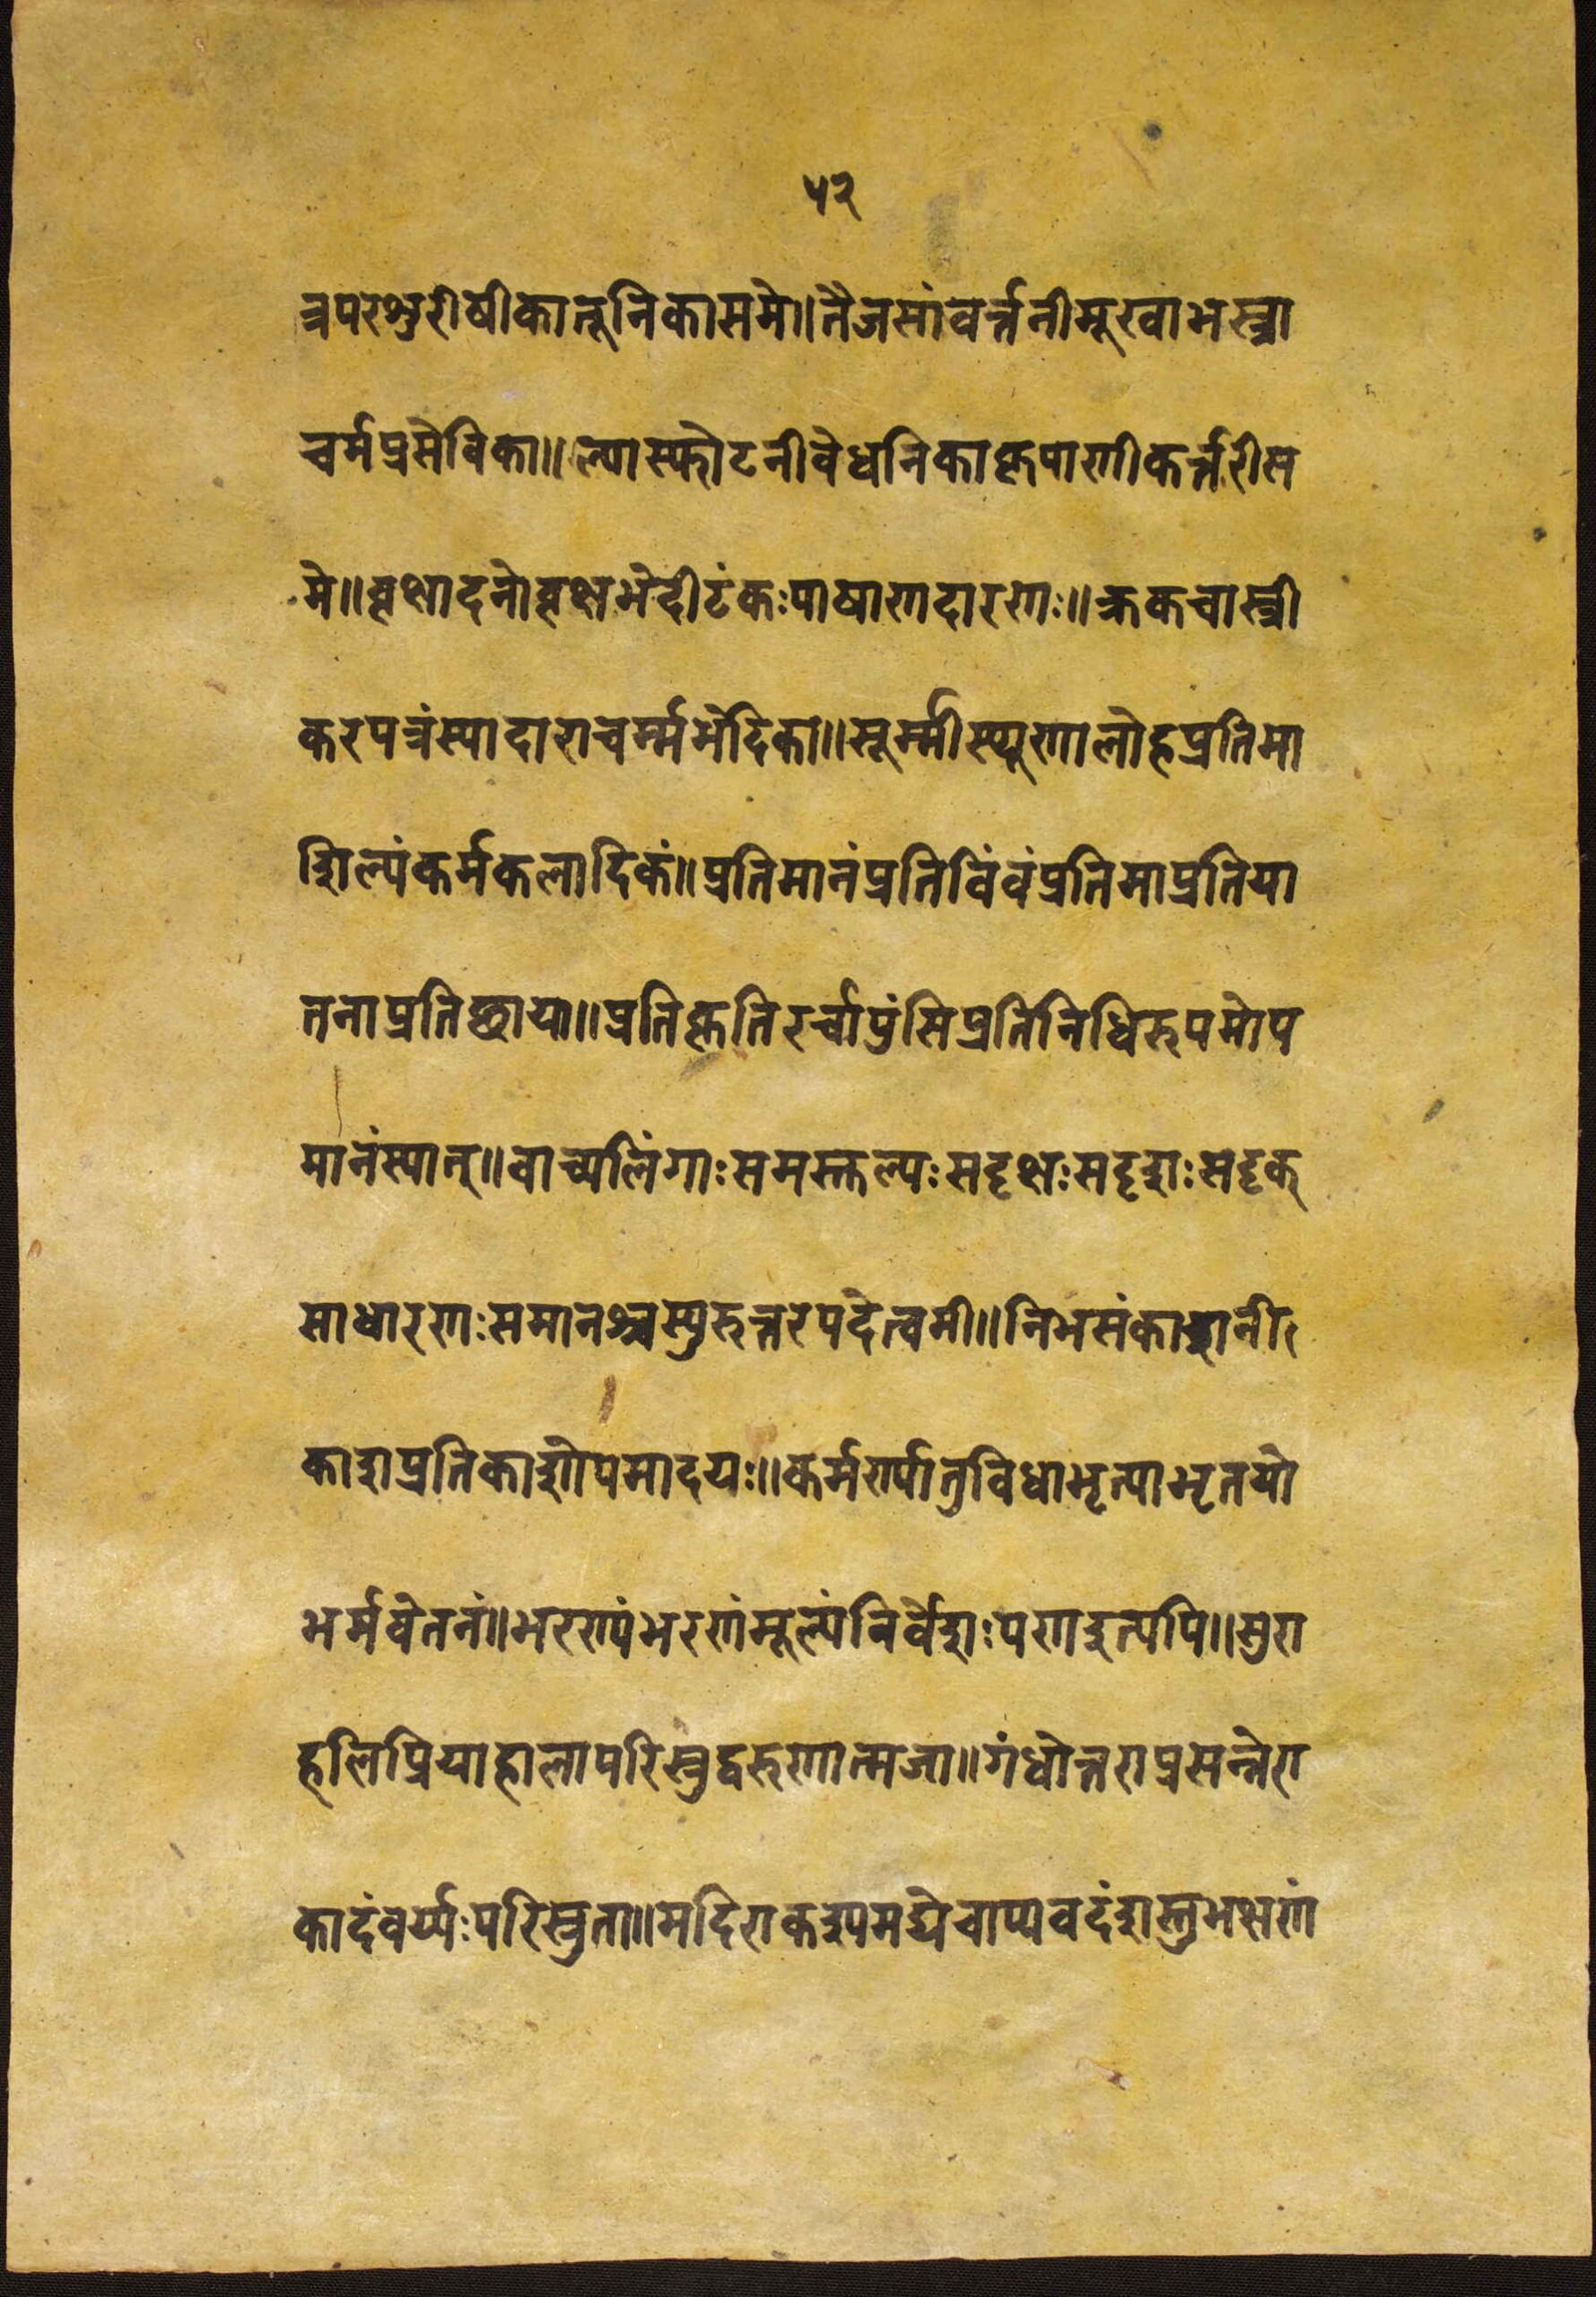 ५२
त्रपरशुरीषीकातूनिकासमे॥तैजसांवर्त्तनीमूखाभस्त्रा
चर्मप्रसेविका॥ल्पास्फोटनीवेधनिकाकृपाणीकर्त्तरीस
मे॥वृक्षादनोवृक्षभेदीटंकःपाषाणदारणः॥क्रकचास्त्री
करपत्रंस्यादाराचर्म्मभेदिका॥सूर्म्मीस्थूणालोहप्रतिमा
शिल्पंकर्मकलादिकं॥प्रतिमानंप्रतिविंवंप्रतिमाप्रतिया
तनाप्रतिछाया॥प्रतिकृतिरर्चापुंसिप्रतिनिधिरुपमोप
मानंस्यात्॥वाच्यलिंगाःसमस्तुल्पःसदृक्षःसदृशःसदृक्
साधारणःसमानश्चस्युरुत्तरपदेत्वमी॥निभसंकाशनी
काशप्रतिकाशोपमादयः॥कर्मण्यातुविधाभृत्याभृतयो
भर्मवेतनं॥भरण्यंभरणंमूल्पंनिर्वेशःपणइत्यपि॥सुरा
हलिप्रियाहालापरिस्रुद्वरुणात्मजा॥गंधोत्तराप्रसन्नेरा
कादंवर्य्यःपरिस्रुता॥मदिराकश्यमद्येचाप्यवदंशस्तुभक्षणं